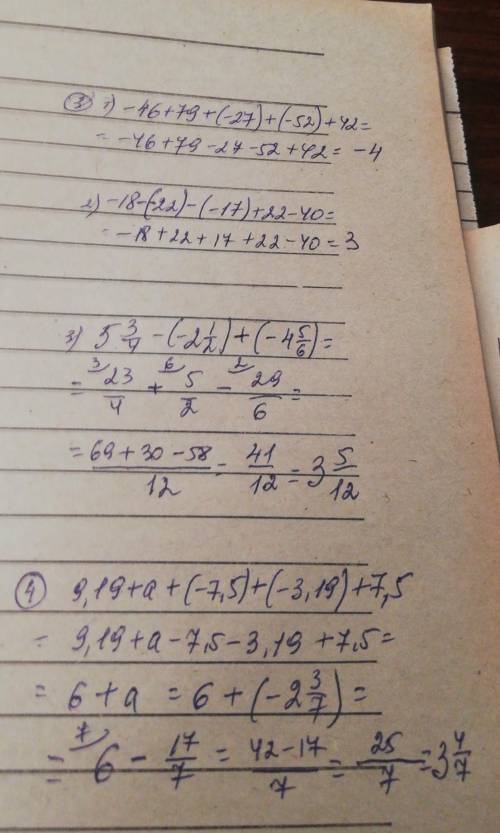 ③ 1) -46+79+(-27)+(-52)+42=
= -46+79-27-52+42= -4
2) -18-(-22)-(-17)+22-40=
= -18+22+17+22-40=3
3) 5 3/4 -(-2 1/2)+(-4 5/6)=
= ³⁾23/4 + ⁶⁾5/2 - ²⁾29/6 =
= (69+30-58)/12 = 41/12 = 3 5/12
④ 9,19+a+(-7,5)+(-3,19)+7,5
= 9,19+a-7,5-3,19+7,5=
= 6+a = 6+(-2 3/7)=
= ⁷⁾6 - 17/7 = (42-17)/7 = 25/7 = 3 4/7